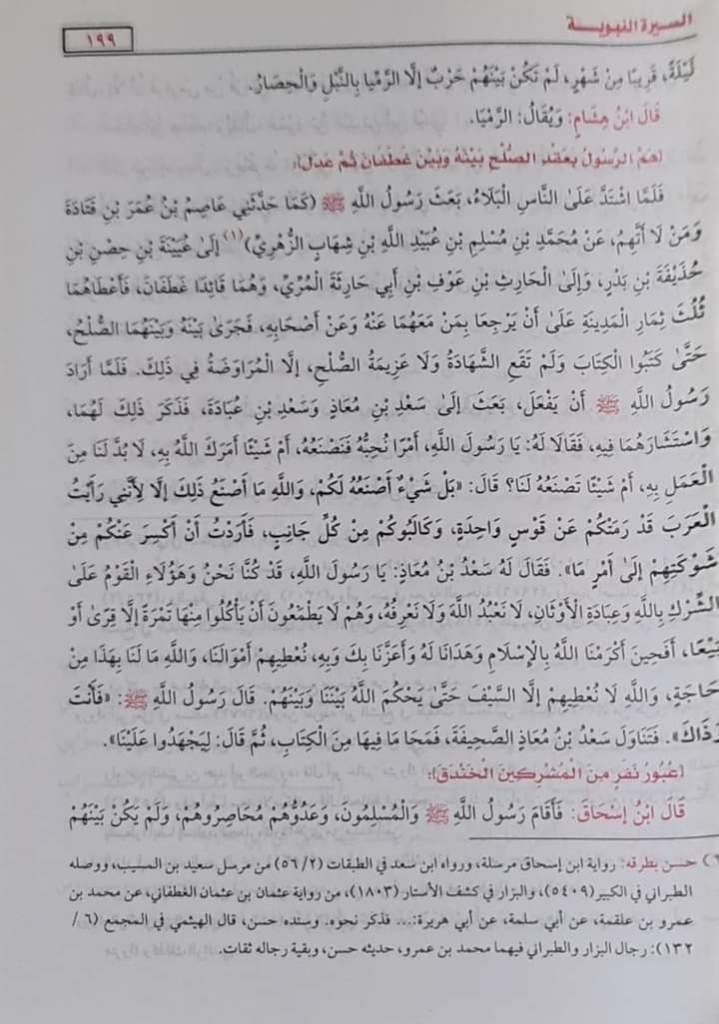 السيرة النبوية
١٩٩
لَيْلَةً، قَرِيبًا مِنْ شَهْرٍ، لَمْ تَكُنْ بَيْنَهُمْ حَرْبٌ إلَّا الرِّمِّيَا بِالنَّبْلِ وَالْحِصَارُ.
قَالَ ابْنُ هِشَامٍ: وَيُقَالُ: الرَّمْيَا.
[هَمُّ الرَّسُولِ بِعَقْدِ الصُّلْحِ بَيْنَهُ وَبَيْنَ غَطَفَانَ ثُمَّ عَدَلَ]:
فَلَمَّا اشْتَدَّ عَلَى النَّاسِ الْبَلَاءُ، بَعَثَ رَسُولُ اللَّهِ ﷺ (كَمَا حَدَّثَنِي عَاصِمُ بْنُ عُمَرَ بْنِ قَتَادَةَ
وَمَنْ لَا أَتَّهِمُ، عَنْ مُحَمَّدِ بْنِ مُسْلِمِ بْنِ عُبَيْدِ اللَّهِ بْنِ شِهَابٍ الزُّهْرِيِّ)(١) إلَى عُيَيْنَةَ بْنِ حِصْنِ بْنِ
حُذَيْفَةَ بْنِ بَدْرٍ، وَإِلَى الْحَارِثِ بْنِ عَوْفِ بْنِ أَبِي حَارِثَةَ الْمُرِّيِّ، وَهُمَا قَائِدَا غَطَفَانَ، فَأَعْطَاهُمَا
ثُلُثَ ثِمَارِ الْمَدِينَةِ عَلَى أَنْ يَرْجِعَا بِمَنْ مَعَهُمَا عَنْهُ وَعَنْ أَصْحَابِهِ، فَجَرَى بَيْنَهُ وَبَيْنَهُمَا الصُّلْحُ،
حَتَّى كَتَبُوا الْكِتَابَ وَلَمْ تَقَعِ الشَّهَادَةُ وَلَا عَزِيمَةُ الصُّلْحِ، إلَّا الْمُرَاوَضَةُ فِي ذَلِكَ. فَلَمَّا أَرَادَ
رَسُولُ اللَّهِ ﷺ أَنْ يَفْعَلَ، بَعَثَ إلَى سَعْدِ بْنِ مُعَاذٍ وَسَعْدِ بْنِ عُبَادَةَ، فَذَكَرَ ذَلِكَ لَهُمَا،
وَاسْتَشَارَهُمَا فِيهِ، فَقَالَا لَهُ: يَا رَسُولَ اللَّهِ، أَمْرًا نُحِبُّهُ فَنَصْنَعُهُ، أَمْ شَيْئًا أَمَرَكَ اللَّهُ بِهِ، لَا بُدَّ لَنَا مِنَ
الْعَمَلِ بِهِ، أَمْ شَيْئًا تَصْنَعُهُ لَنَا؟ قَالَ: «بَلْ شَيْءٌ أَصْنَعُهُ لَكُمْ، وَاللَّهِ مَا أَصْنَعُ ذَلِكَ إلَّا لِأَنَّنِي رَأَيْتُ
الْعَرَبَ قَدْ رَمَتْكُمْ عَنْ قَوْسٍ وَاحِدَةٍ، وَكَالَبُوكُمْ مِنْ كُلِّ جَانِبٍ، فَأَرَدْتُ أَنْ أَكْسِرَ عَنْكُمْ مِنْ
شَوْكَتِهِمْ إلَى أَمْرٍ مَا». فَقَالَ لَهُ سَعْدُ بْنُ مُعَاذٍ: يَا رَسُولَ اللَّهِ، قَدْ كُنَّا نَحْنُ وَهَؤُلَاءِ الْقَوْمُ عَلَى
الشِّرْكِ بِاللَّهِ وَعِبَادَةِ الْأَوْثَانِ، لَا نَعْبُدُ اللَّهَ وَلَا نَعْرِفُهُ، وَهُمْ لَا يَطْمَعُونَ أَنْ يَأْكُلُوا مِنْهَا تَمْرَةً إلَّا قِرًى أَوْ
بَيْعًا، أَفَحِينَ أَكْرَمَنَا اللَّهُ بِالْإِسْلَامِ وَهَدَانَا لَهُ وَأَعَزَّنَا بِكَ وَبِهِ، نُعْطِيهِمْ أَمْوَالَنَا، وَاللَّهِ مَا لَنَا بِهَذَا مِنْ
حَاجَةٍ، وَاللَّهِ لَا نُعْطِيهِمْ إلَّا السَّيْفَ حَتَّى يَحْكُمَ اللَّهُ بَيْنَنَا وَبَيْنَهُمْ. قَالَ رَسُولُ اللَّهِ ﷺ: «فَأَنْتَ
وَذَاكَ». فَتَنَاوَلَ سَعْدُ بْنُ مُعَاذٍ الصَّحِيفَةَ، فَمَحَا مَا فِيهَا مِنَ الْكِتَابِ، ثُمَّ قَالَ: لِيَجْهَدُوا عَلَيْنَا».
[عُبُورُ نَفَرٍ مِنَ الْمُشْرِكِينَ الْخَنْدَقَ]:
قَالَ ابْنُ إسْحَاقَ: فَأَقَامَ رَسُولُ اللَّهِ ﷺ وَالْمُسْلِمُونَ، وَعَدُوُّهُمْ مُحَاصِرُوهُمْ، وَلَمْ يَكُنْ بَيْنَهُمْ
(١) حسن بطرقه: رواية ابن إسحاق مرسلة، ورواه ابن سعد في الطبقات (٢/ ٥٦) من مرسل سعيد بن المسيب، ووصله
الطبراني في الكبير (٥٤٠٩)، والبزار في كشف الأستار (١٨٠٣)، من رواية عثمان بن عثمان الغطفاني، عن محمد بن
عمرو بن علقمة، عن أبي سلمة، عن أبي هريرة:... فذكر نحوه. وسنده حسن، قال الهيثمي في المجمع (٦/
١٣٢): رجال البزار والطبراني فيهما محمد بن عمرو، حديثه حسن، وبقية رجاله ثقات.